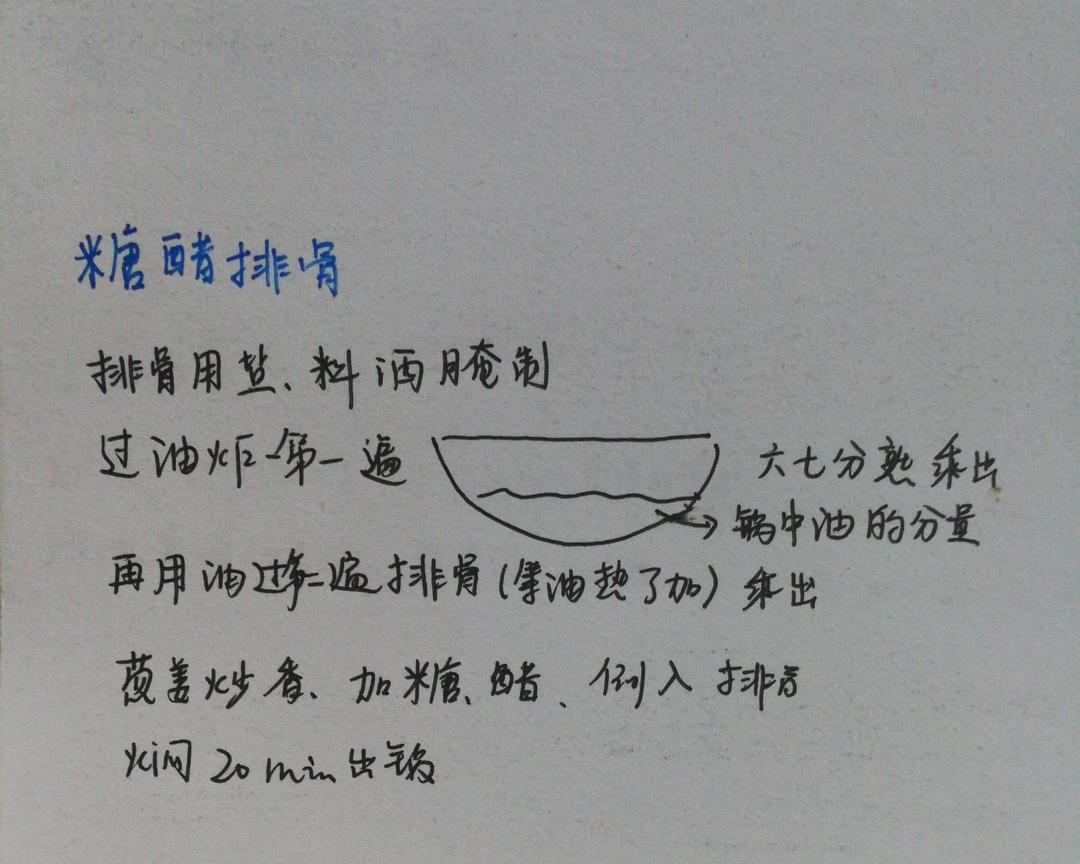 糖醋排骨
排骨用盐、料酒腌制
过油炸第一遍 六七分熟乘出
锅中油的分量
再用油过第二遍排骨(等油热了加)乘出
葱姜炒香、加糖、醋、倒入排骨
焖20min出锅